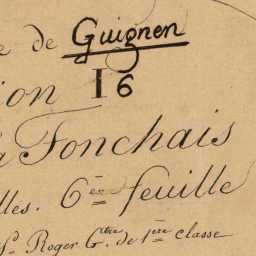 e de Guignen
ion I 6
a Fonchais
lles. 6ème feuille
Sr. Roger Gtre de 1ère classe